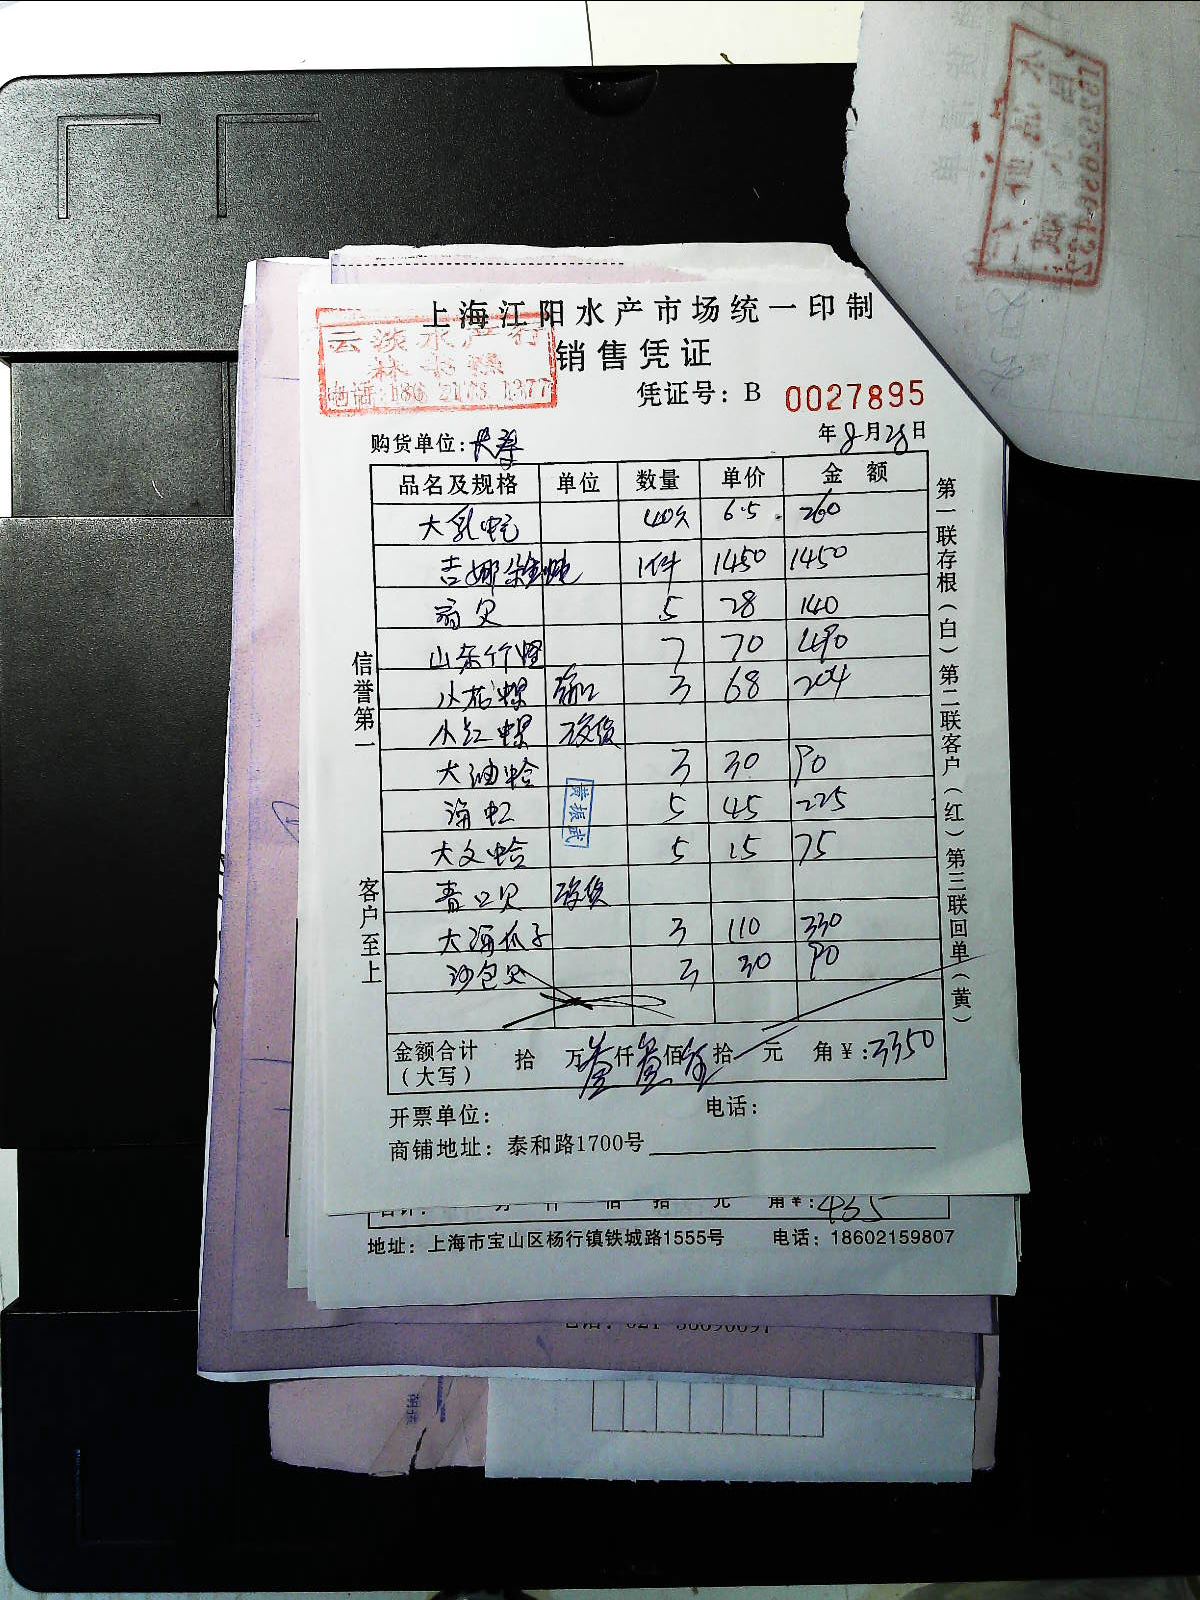 上海江阳水产市场统一印制
云淡水产行
销售凭证
电话:186 2173 1377
凭证号: B 0027895
购货单位:
年8月28日
品名及规格 单位 数量 单价 金额
大乳蛇 40只 6.5 260
吉娜 1件 1450 1450
扇贝 5 28 140
山东竹蛏 7 70 490
小花螺 3 68 204
小红螺 没货
大油蛤 3 30 90
海虹 5 45 225
大文蛤 5 15 75
青口贝 没货
大海瓜子 3 110 330
沙包贝 3 30 90
黄振武
信誉第一
客户至上
第一联存根(白)第二联客户(红)第三联回单(黄)
金额合计(大写) 拾 万 仟 佰 拾 元 角 ¥:3350
开票单位: 电话:
商铺地址: 泰和路1700号
合计: 万 仟 佰 拾 元 角 ¥: 435
地址: 上海市宝山区杨行镇铁城路1555号 电话: 18602159807